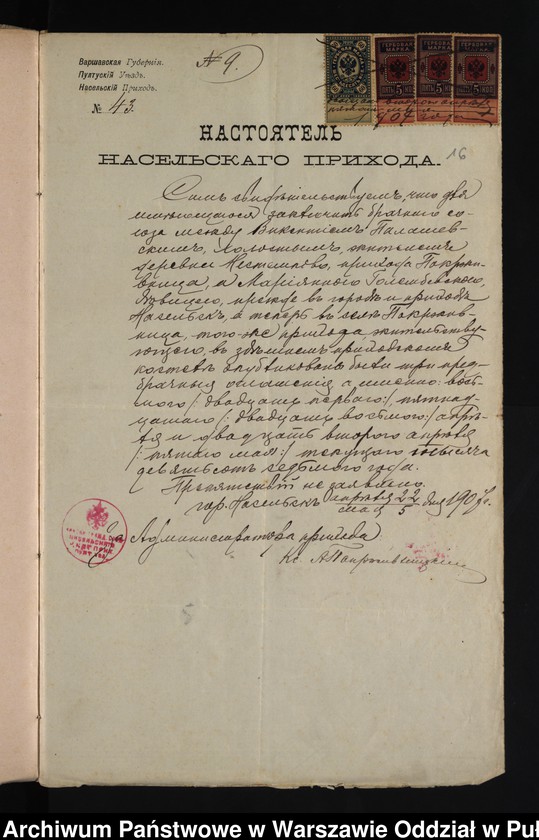 Варшавская Губернія.
Пултускій Уѣздъ.
Насельскій Приходъ.
№ 43.
№ 9.
ГЕРБОВАЯ МАРКА ГЕРБОВАЯ МАРКА ГЕРБОВАЯ МАРКА
ПЯТЬ 5 КОП 5 5 КОП
1907 года
16
НАСТОЯТЕЛЬ
НАСЕЛЬСКАГО ПРИХОДА.
Симъ свидѣтельствуемъ, что для
имѣющагося заключить брачнаго со-
юза между Викентіемъ Палашев-
скимъ, холостымъ, жителемъ
деревни прихода Покрив-
ница, и Маріянною Голембевскою,
дѣвицею, прежде въ городѣ и приходѣ
Насельскъ, а теперь въ селѣ Покрив-
ница, того-же прихода жительству-
ющею, въ здѣшнемъ приходскомъ
костелѣ опубликованы были три пред-
брачныя оглашенія а именно: вось-
мого /: двадцать перваго :/ пятнад-
цатаго /: двадцать восьмого :/ апрѣ-
ля и двадцать второго апрѣля
/: пятаго мая :/ текущаго тысяча
девятьсотъ седьмого года.
Препятствій не заявлено.
гор. Насельскъ апрѣля 22 / мая 5 дня 1907 г.
За Администратора прихода
Кс.
5
Archiwum Państwowe w Warszawie Oddział w Puł